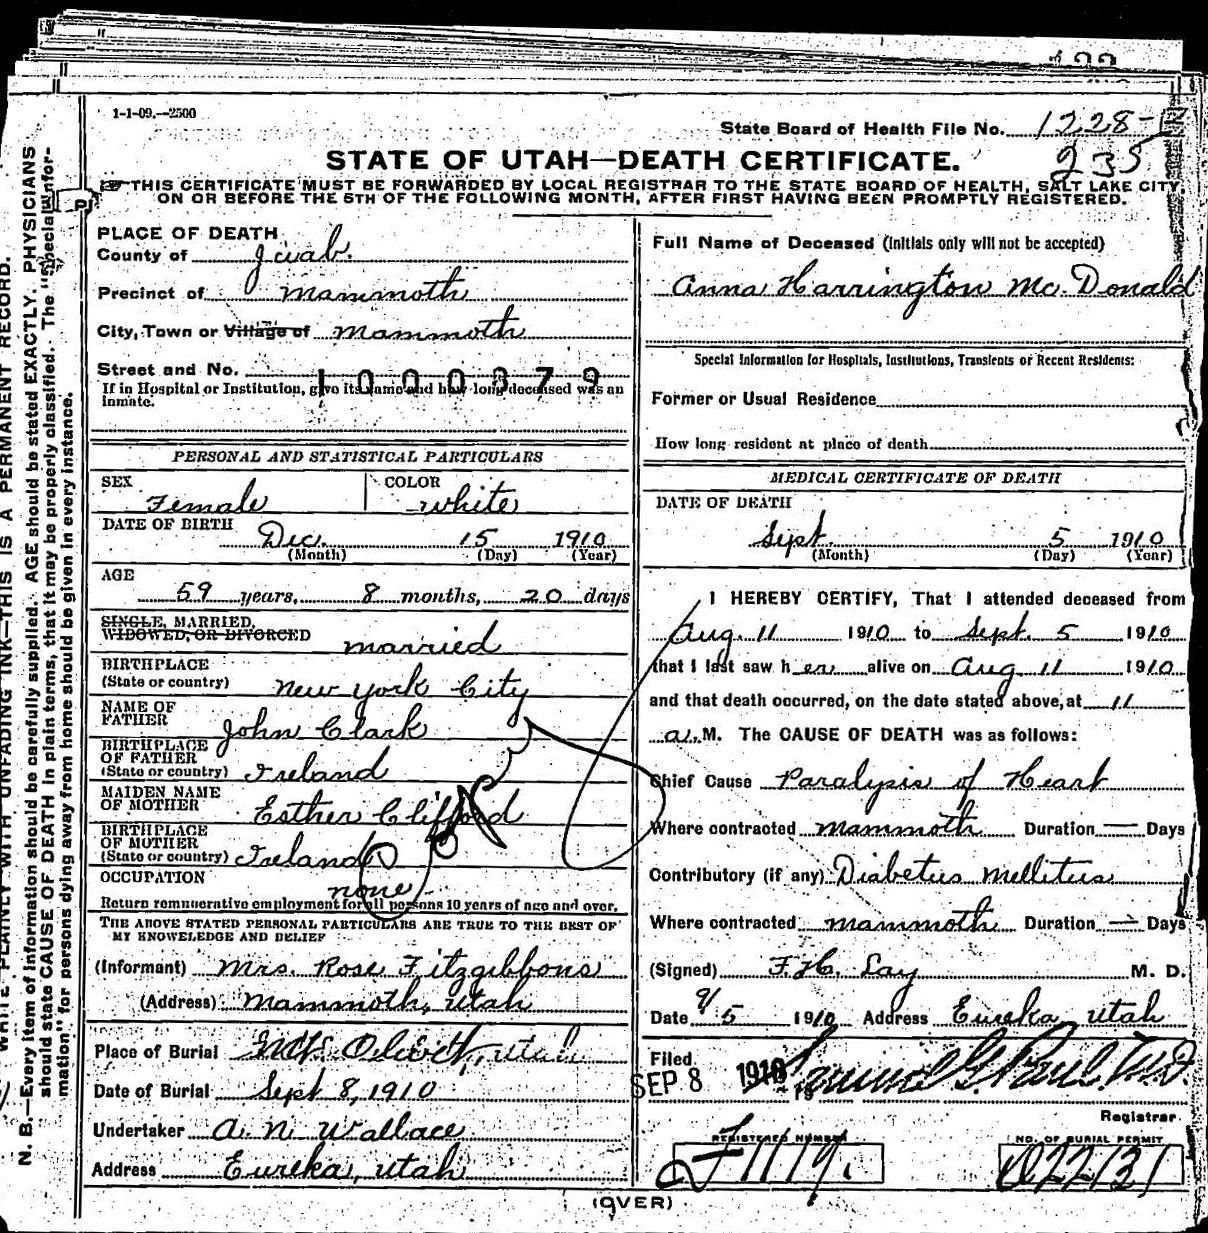 1-1-09.—2500
State Board of Health File No. 1228-
235
STATE OF UTAH—DEATH CERTIFICATE.
THIS CERTIFICATE MUST BE FORWARDED BY LOCAL REGISTRAR TO THE STATE BOARD OF HEALTH, SALT LAKE CITY,
ON OR BEFORE THE 5TH OF THE FOLLOWING MONTH, AFTER FIRST HAVING BEEN PROMPTLY REGISTERED.
PLACE OF DEATH
County of Juab.
Precinct of Mammoth
City, Town or Village of Mammoth
Street and No.
1000379
If in Hospital or Institution, give its name and how long deceased was an
inmate.
PERSONAL AND STATISTICAL PARTICULARS
SEX Female COLOR white
DATE OF BIRTH Dec. 15 1910
(Month) (Day) (Year)
AGE
59 years, 8 months, 20 days
SINGLE, MARRIED,
WIDOWED, OR DIVORCED married
BIRTHPLACE
(State or country) New York City
NAME OF
FATHER John Clark
BIRTHPLACE
OF FATHER
(State or country) Ireland
MAIDEN NAME
OF MOTHER Esther Clifford
BIRTHPLACE
OF MOTHER
(State or country) Ireland
OCCUPATION none
Return remunerative employment for all persons 10 years of age and over.
THE ABOVE STATED PERSONAL PARTICULARS ARE TRUE TO THE BEST OF
MY KNOWLEDGE AND BELIEF
(Informant) Mrs. Rose Fitzgibbons
(Address) Mammoth, Utah
Place of Burial Mt. Olivet, Utah
Date of Burial Sept 8, 1910
Undertaker A. N. Wallace
Address Eureka, Utah
Full Name of Deceased (Initials only will not be accepted)
Anna Harrington Mc. Donald
Special Information for Hospitals, Institutions, Transients or Recent Residents:
Former or Usual Residence
How long resident at place of death
MEDICAL CERTIFICATE OF DEATH
DATE OF DEATH
Sept. 5 1910
(Month) (Day) (Year)
I HEREBY CERTIFY, That I attended deceased from
Aug. 11 1910 to Sept. 5 1910
that I last saw her alive on Aug 11 1910
and that death occurred, on the date stated above, at 11
a. M. The CAUSE OF DEATH was as follows:
Chief Cause Paralysis of Heart
Where contracted Mammoth Duration — Days
Contributory (if any) Diabetus Mellitus
Where contracted Mammoth Duration — Days
(Signed) F. H. Lay M. D.
Date 9/5 1910 Address Eureka Utah
Filed
SEP 8 1910 Samuel G. Paul. M.D.
Registrar
REGISTERED NUMBER
NO. OF BURIAL PERMIT
22131
(OVER)
N. B.—Every item of information should be carefully supplied. AGE should be stated EXACTLY. PHYSICIANS
should state CAUSE OF DEATH in plain terms, that it may be properly classified. The "Special Infor-
mation" for persons dying away from home should be given in every instance.
WRITE PLAINLY WITH UNFADING INK—THIS IS A PERMANENT RECORD.